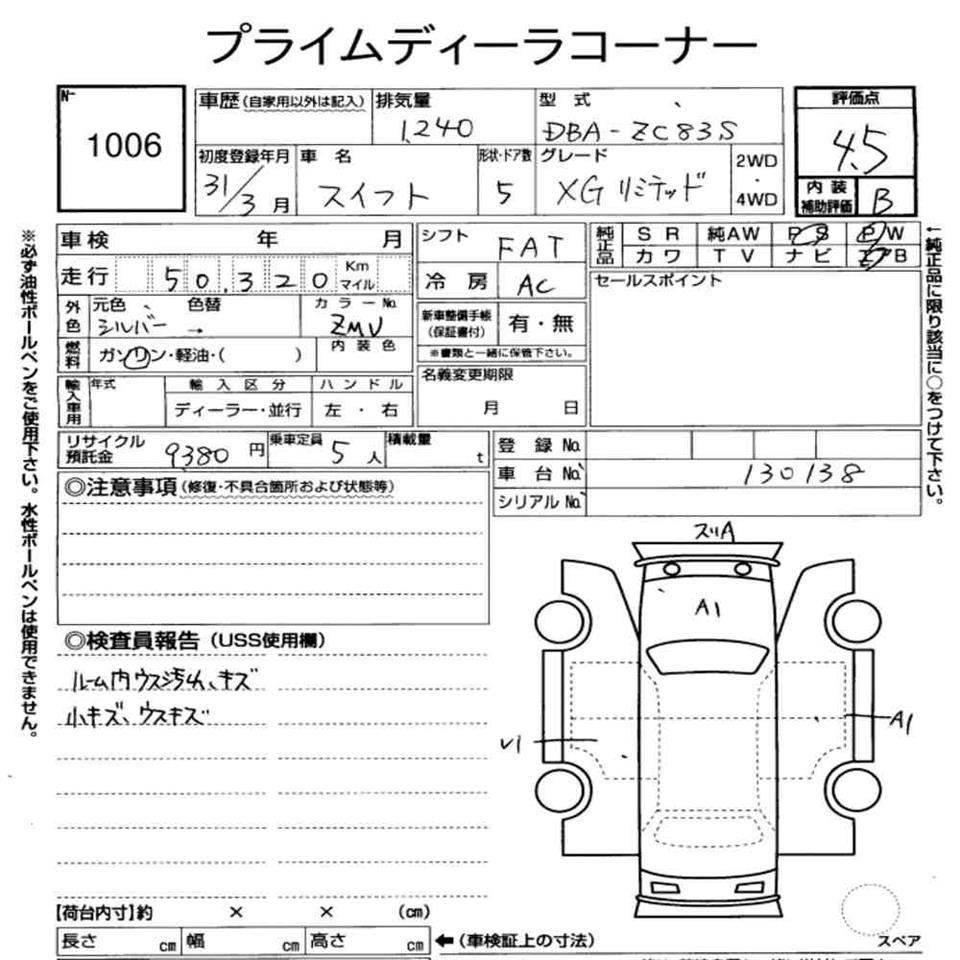 プライムディーラコーナー
No. 1006
車歴(自家用以外は記入) 排気量 1,240 型式 DBA-ZC83S 評価点 4.5
初度登録年月 31/3月 車名 スイフト 形状・ドア数 5 グレード XGリミテッド 2WD・4WD 内装補助評価 B
※必ず油性ボールペンをご使用下さい。水性ボールペンは使用できません。
←純正品に限り該当に○をつけて下さい。
車検 年 月 シフト FAT 純正品 SR 純AW PS PW
走行 50,320 Km マイル 冷房 AC カワ TV ナビ エアB
外色 元色 シルバー 色替 → カラーNo. ZMV 新車整備手帳(保証書付) 有・無 セールスポイント
燃料 ガソリン・軽油・( ) 内装色 ※書類と一緒に保管下さい。
輸入車用 年式 輸入区分 ディーラー・並行 ハンドル 左・右 名義変更期限 月 日
リサイクル預託金 9380円 乗車定員 5人 積載量 t 登録No.
車台No. 130138
シリアルNo.
◎注意事項(修復・不具合箇所および状態等)
スリA
A1
◎検査員報告(USS使用欄)
ルーム内ウス汚れ、キズ
小キズ、ウスキズ
A1
U1
【荷台内寸】約 × × (cm)
長さ cm 幅 cm 高さ cm ←(車検証上の寸法) スペア